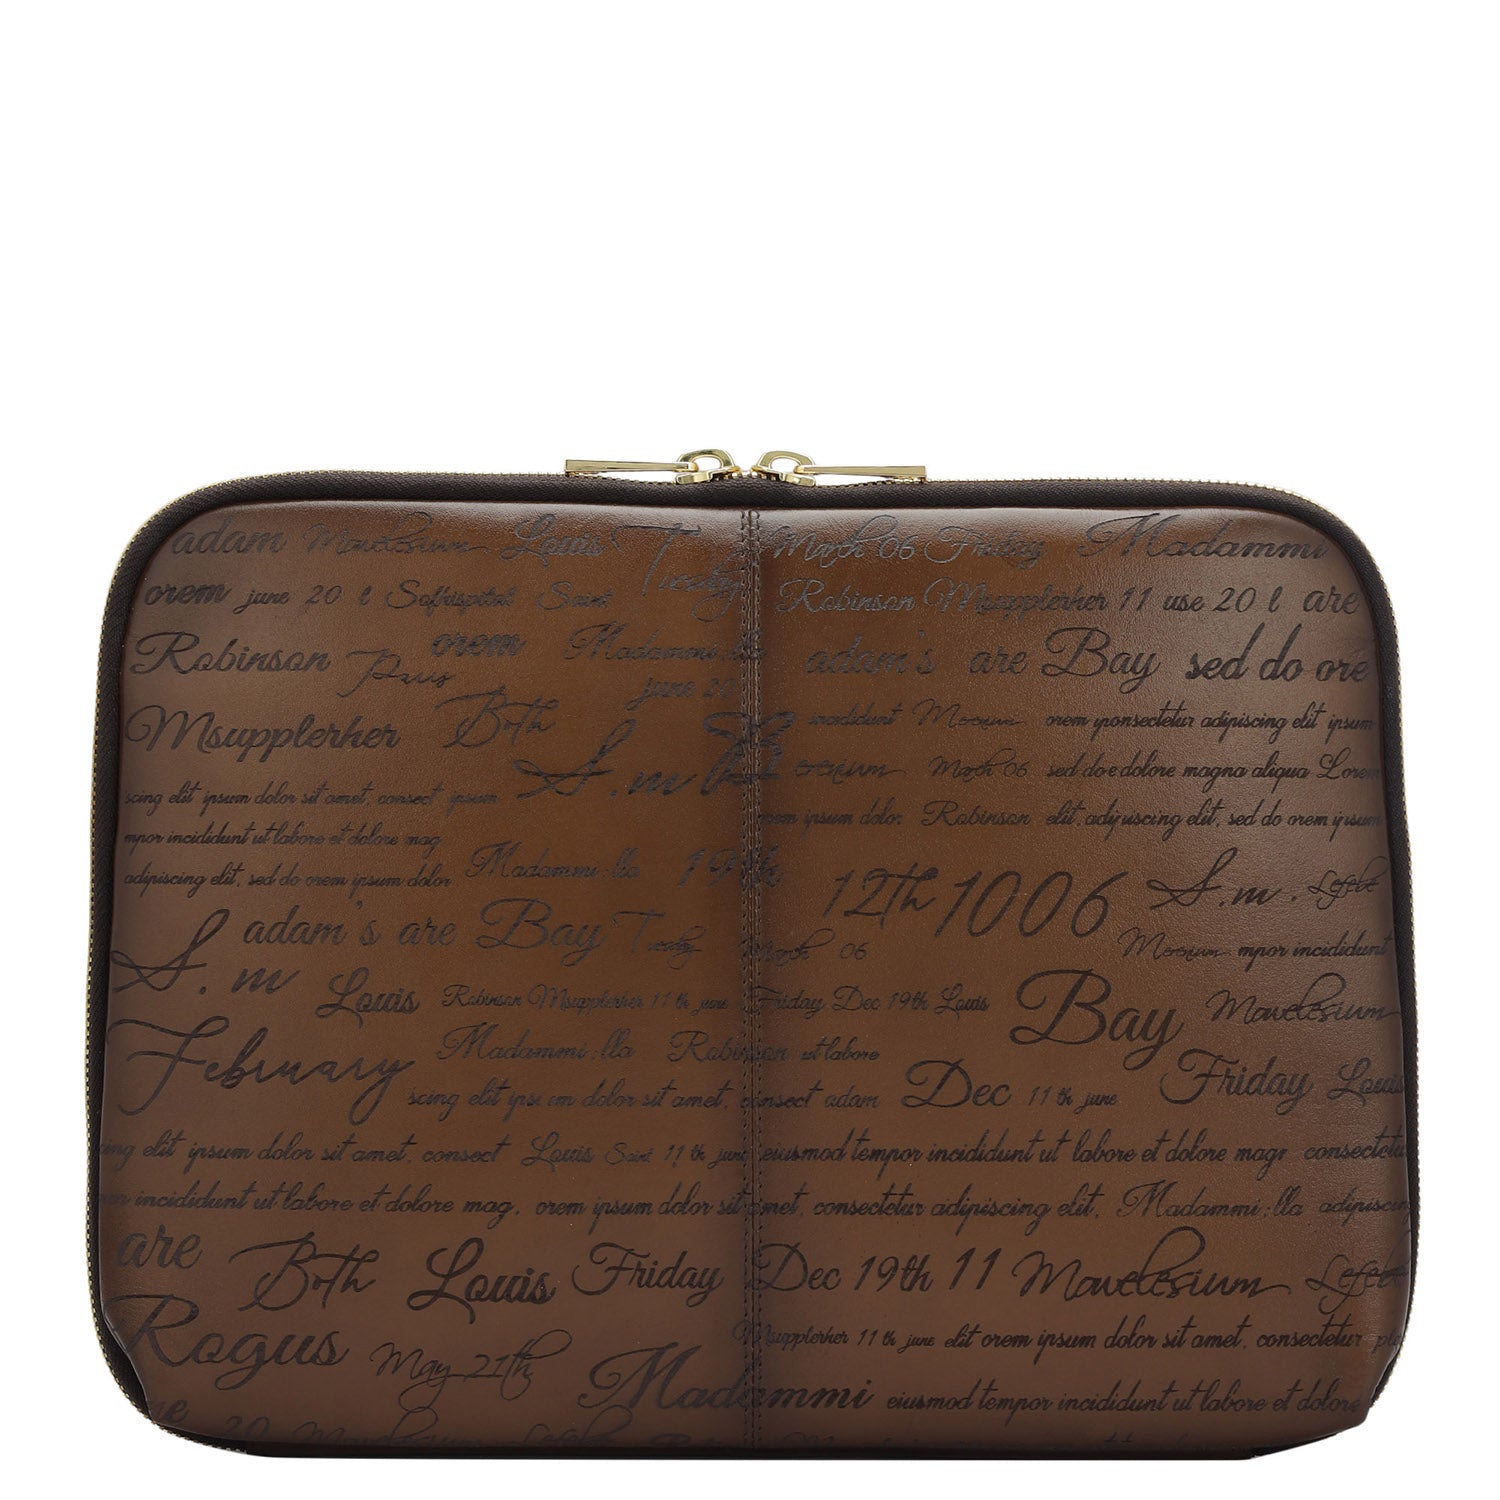 adam Mavelesium Louis Tuesday March 06 Friday Madammi
orem june 20 l Sofrispital Saint Robinson Msupplerher 11 use 20 l are
Robinson Paris orem Madammi:lla adam's are Bay sed do ore
june 20
Msupplerher Both S.m incididunt Morenium orem yponsectetur adipiscing elit ipsum
March 06 sed do e dolore magna aliqua Lorem
scing elit ipsum dolor sit amet, consect ipsum
orem ipsum dolor Robinson elit, adipiscing elit, sed do orem ipsum
mpor incididunt ut labore et dolore mag
adipiscing elit, sed do orem ipsum dolor Madammi:lla 19th 12th 1006 S.m. Lefebe
adam's are Bay Tuesday March 06 mpor incididunt
S.m Louis Robinson Msupplerher 11 th june Friday Dec 19th Louis Bay Mavelesium
February Madammi:lla Robinson ut labore
scing elit ipsum dolor sit amet, consect adam Dec 11 th june Friday Louis
ing elit ipsum dolor sit amet, consect Louis Saint 11 th june eiusmod tempor incididunt ut labore et dolore magr consectetu
por incididunt ut labore et dolore mag, orem ipsum dolor sit amet, consectetur adipiscing elit, Madammi:lla adipiscing
are Both Louis Friday Dec 19th 11 Mavelesium Lefebe
Rogus May 21th Msupplerher 11 th june elit orem ipsum dolor sit amet, consectetur
Madammi eiusmod tempor incididunt ut labore et dolore
20